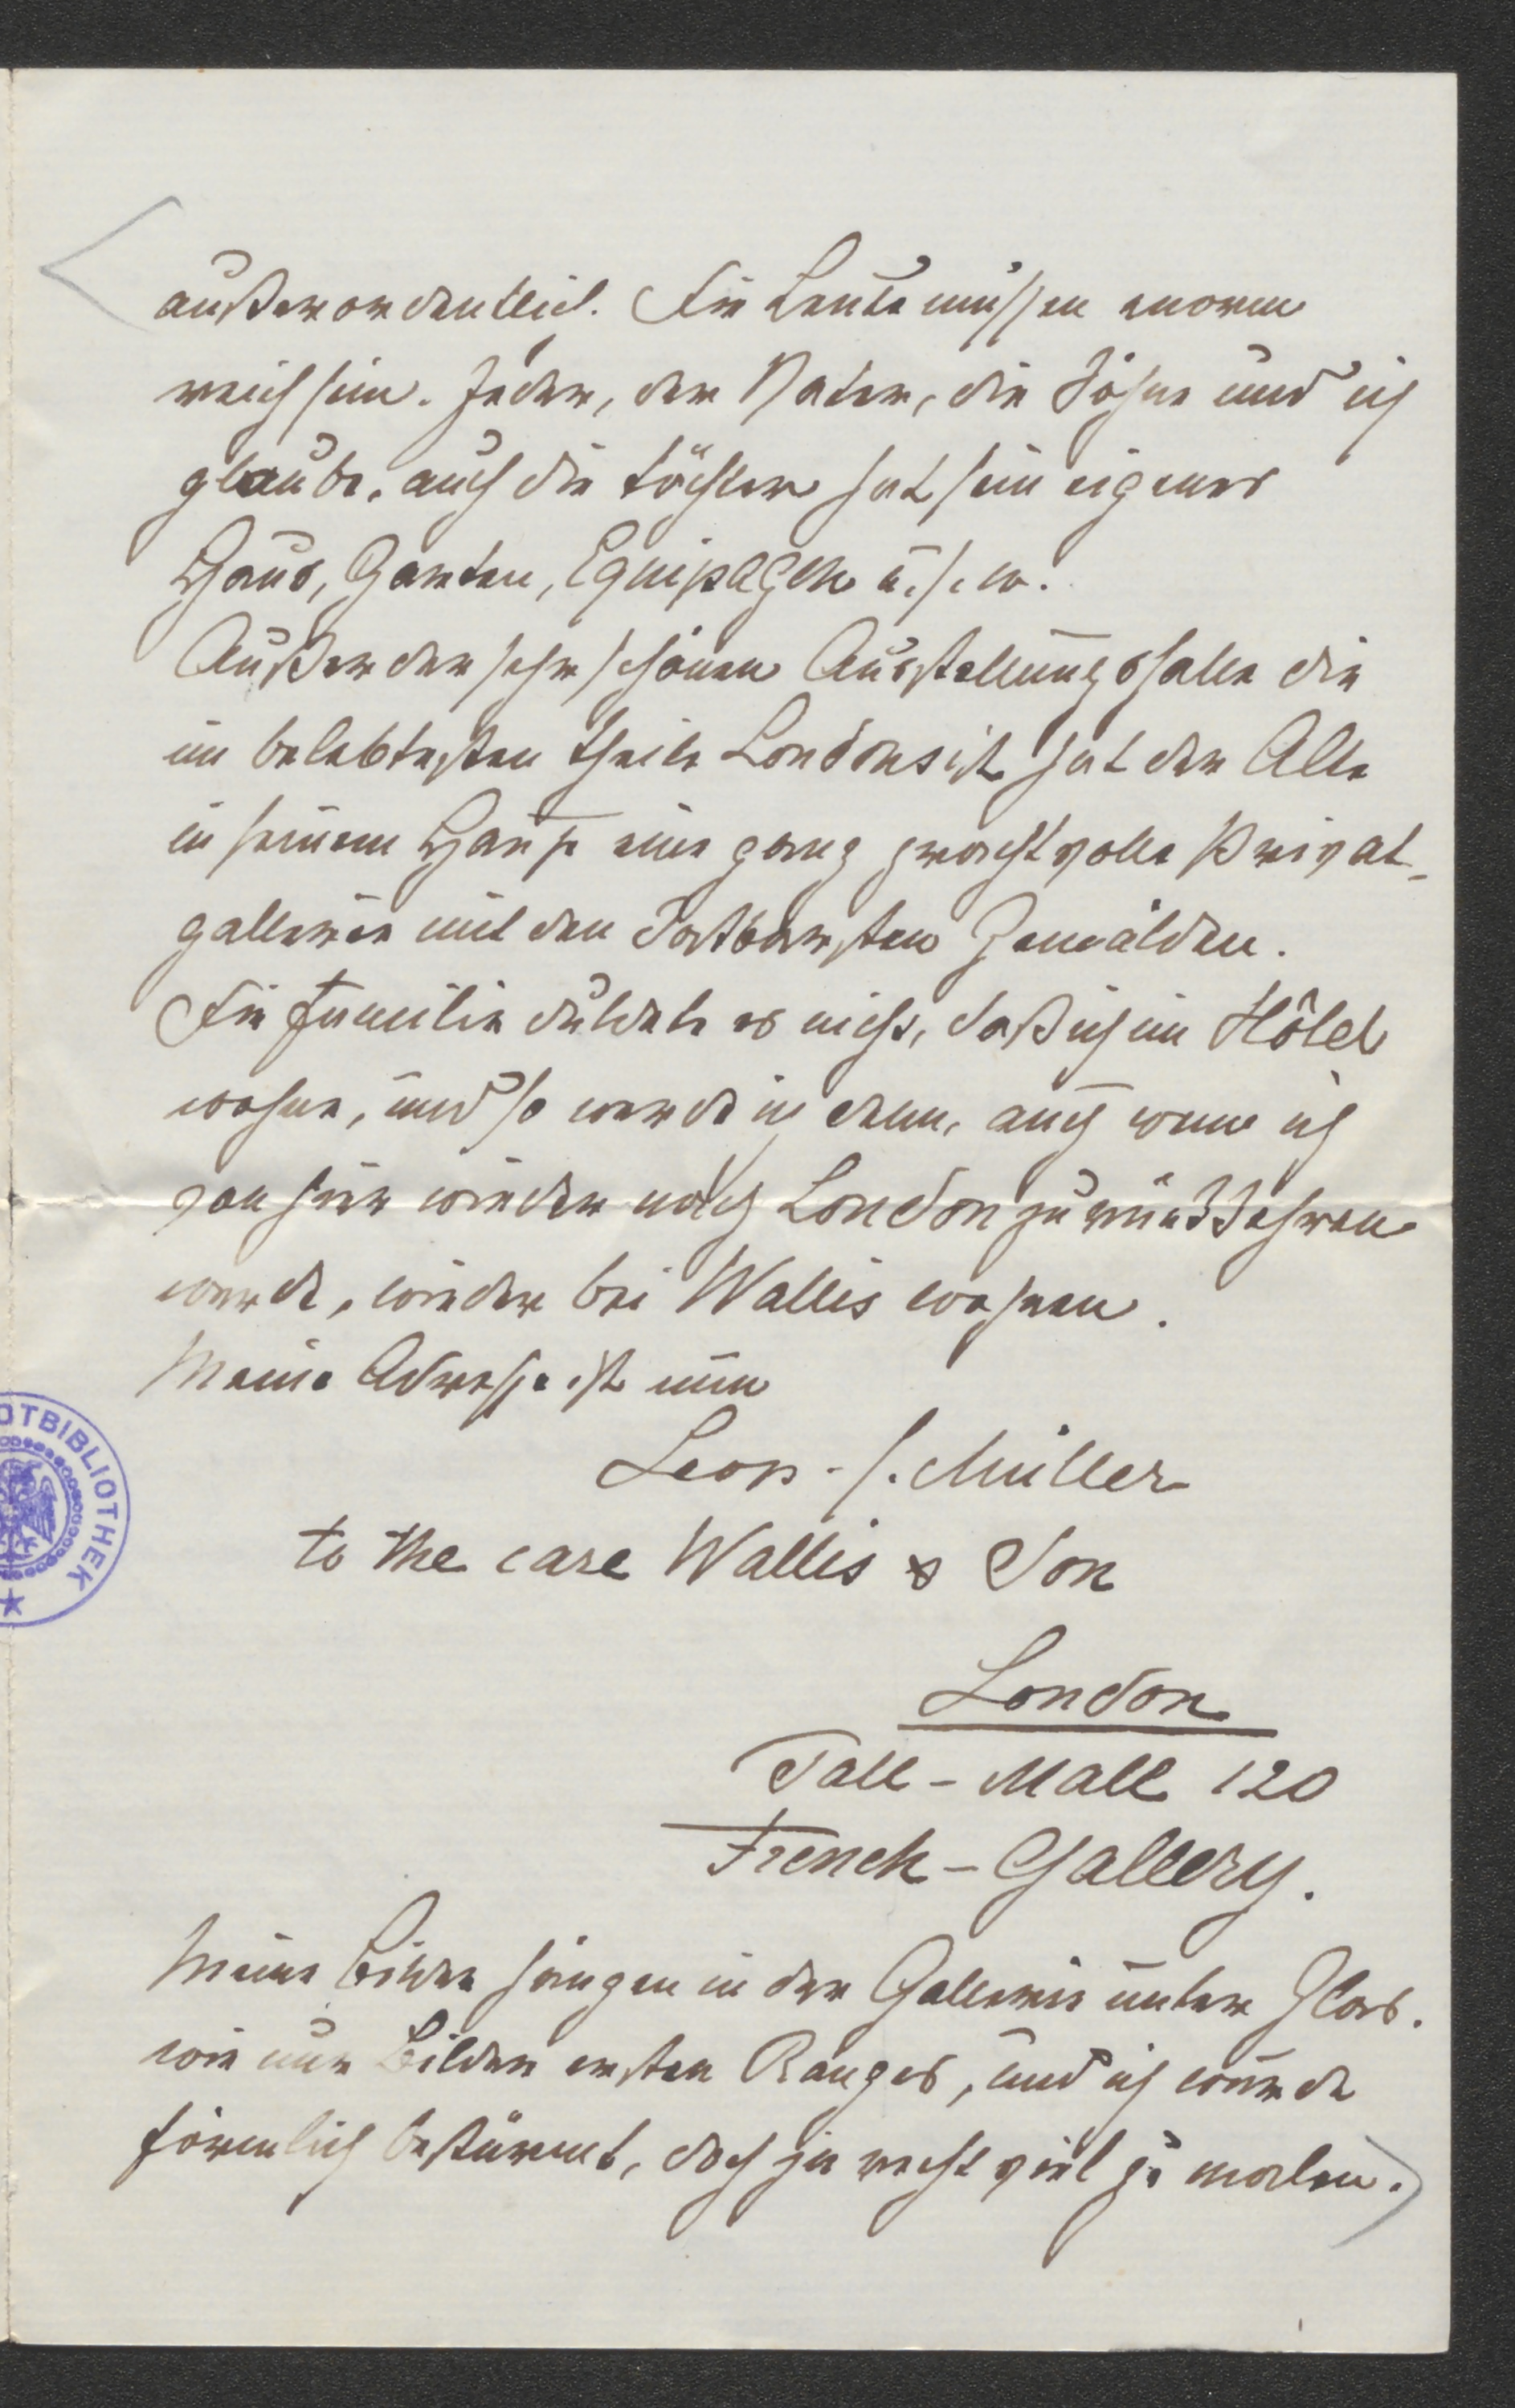 außerordentlich. Die Leute müssen enorm
reich sein. Jeder, der Vater, die Söhne und ich
glaube, auch die Töchter hat sein eigenes
Haus, Garten, Equipagen u. s. w.
Außer der sehr schönen Ausstellungshalle die
im belebtesten Theile Londons ist hat der Alte
in seinem Hause eine ganz prachtvolle Privat-
gallerie mit den kostbarsten Gemälden.
Die Familie duldete es nicht, daß ich im Hôtel
wohne, und so werde ich denn, auch wenn ich
von hier wieder nach London zurückkehren
werde, wieder bei Wallis wohnen.
Meine Adresse ist nun
Leop. C. Müller
to the care Wallis & Son
London
Pall-Mall 120
French-Gallery.
Meine Bilder hängen in der Gallerie unter Glas.
wie nur Bilder ersten Ranges, und ich wurde
förmlich bestürmt, doch ja recht viel zu malen.
OTBIBLIOTHEK